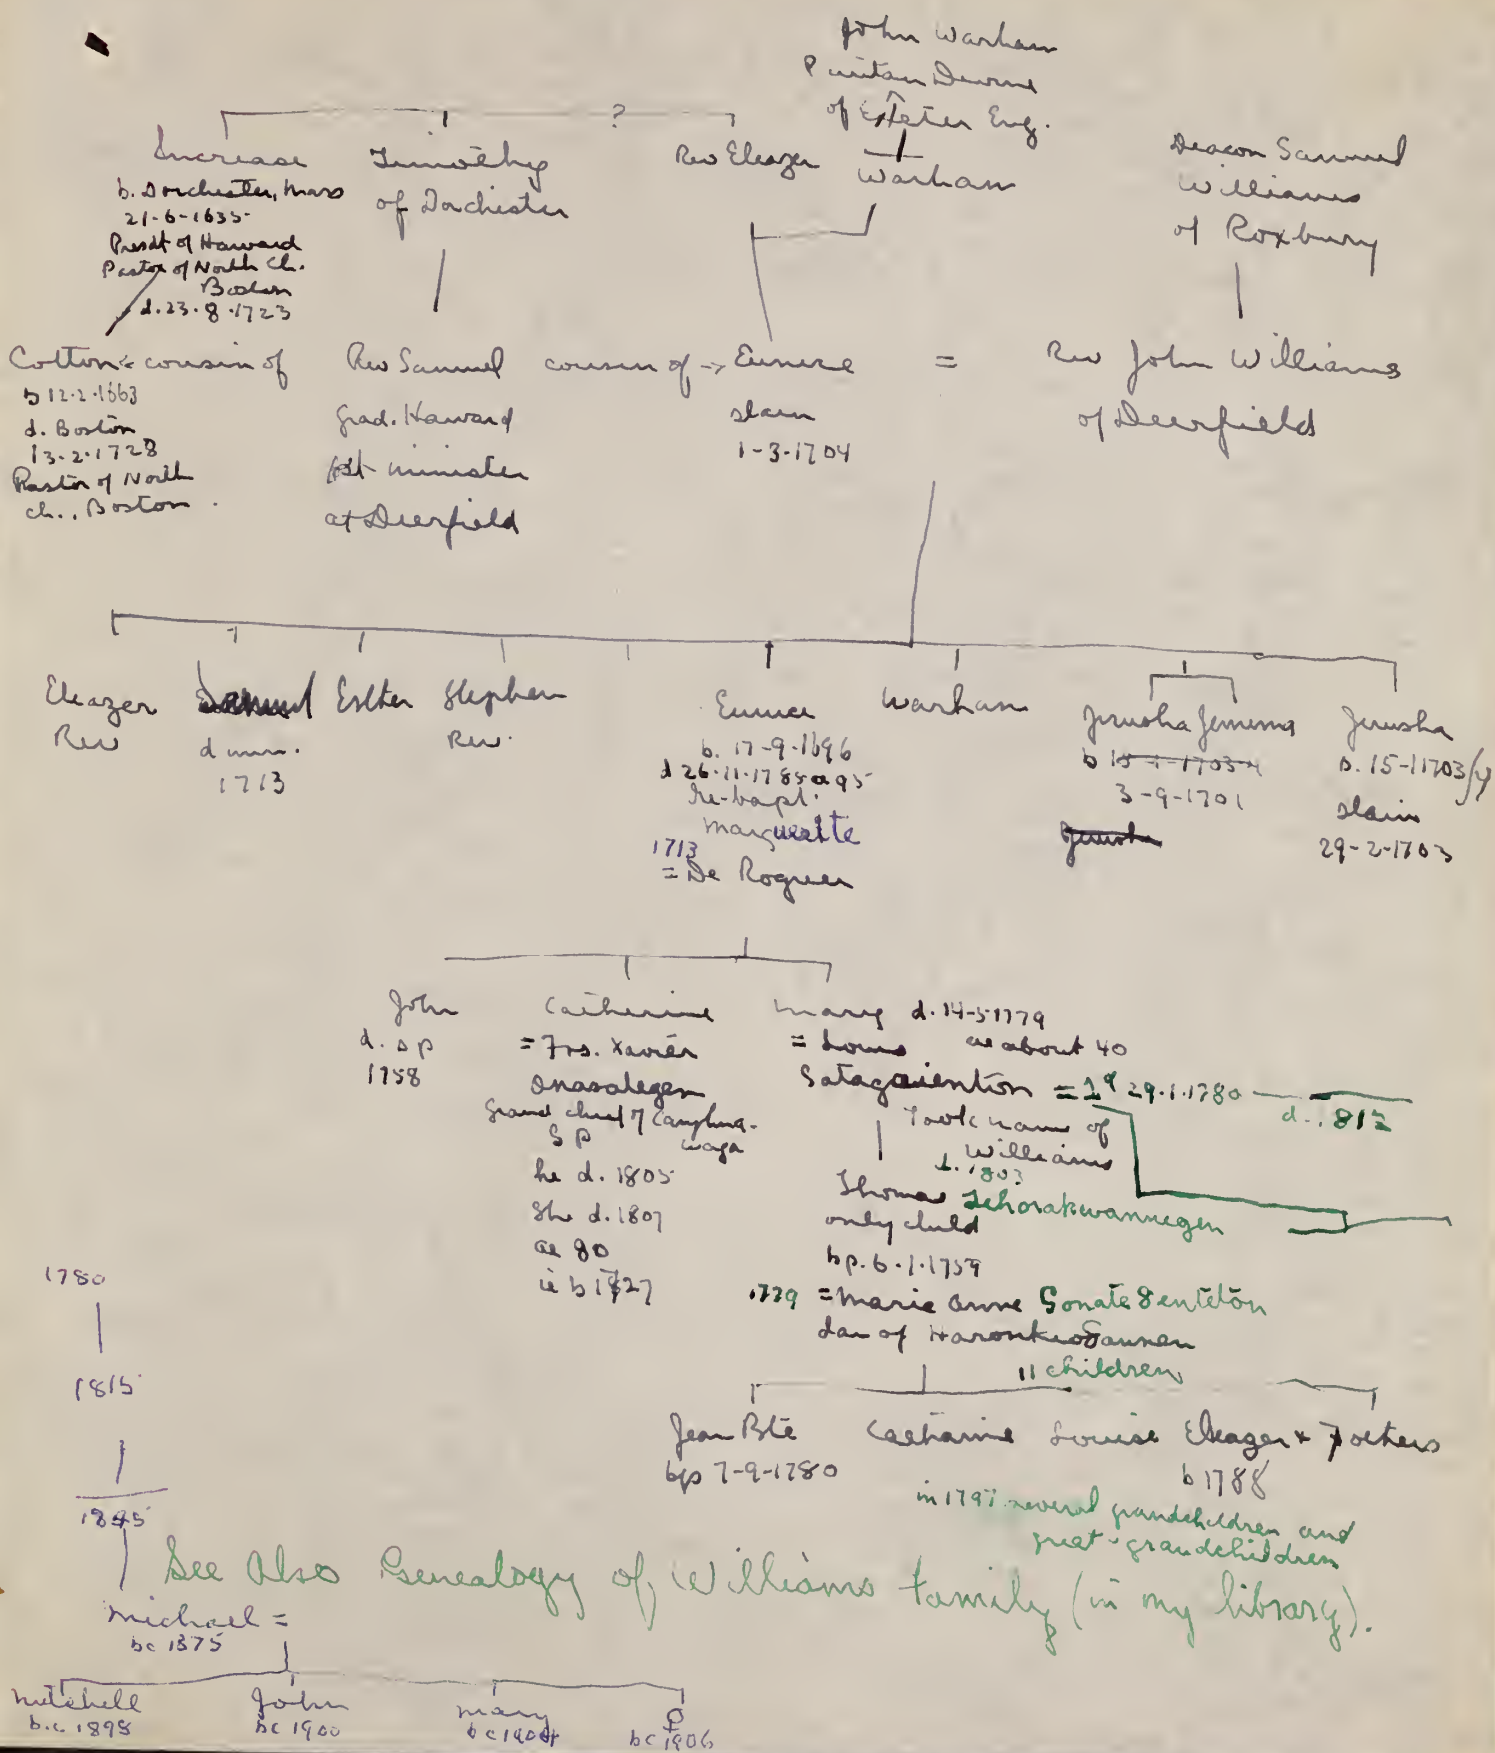 John Warham
Puritan Divine
of Exeter Eng.
?
Increase
b. Dorchester, Mass
21-6-1635
Presdt of Harvard
Pastor of North Ch.
Boston
d. 23.8.1723
Timothy
of Dorchester
Rev Eleazer
Warham
Deacon Samuel
Williams
of Roxbury
Cotton cousin of
b 12.2.1663
d. Boston
13.2.1728
Pastor of North
ch., Boston.
Rev Samuel cousin of → Eunice = Rev John Williams
grad. Harvard
1st minister
at Deerfield
slain
1-3-1704
of Deerfield
Eleazer
Rev
Samuel
d unm.
1713
Esther
Stephen
Rev.
Eunice
b. 17-9-1696
d 26.11.1785 a 95
re-bapt.
Marguerite
1713
= De Roguers
Warham
Jerusha Jemima
b
3-9-1701
Jerusha
Jerusha
b. 15-1 1703/4
slain
29-2-1703
John
d. s p
1758
Catherine
= Frs. Xavier
Onasategen
Grand chief of Caughna-
waga
S P
he d. 1805
She d. 1807
ae 80
ie b 1727
Mary d. 14-5-1779
= Louis ae about 40
Satagaienton = 2º 29.1.1780
d. 1812
Took name of
Williams
d. 1803
Thomas Tehorakwannegen
only child
bp. 6.1.1759
1779 = Marie Anne Konate8enteton
dau of Haronkio
11 children
Jean Bte
bp 7-9-1780
Catharine Louise Eleazer + 7 others
b 1788
in 1797 several grandchildren and
great-grandchildren
1780
1815
1845
See Also Genealogy of Williams Family (in my library).
Michael =
bc 1875
Mitchell
b.c. 1898
John
bc 1900
Mary
bc 1904
♀
bc 1906